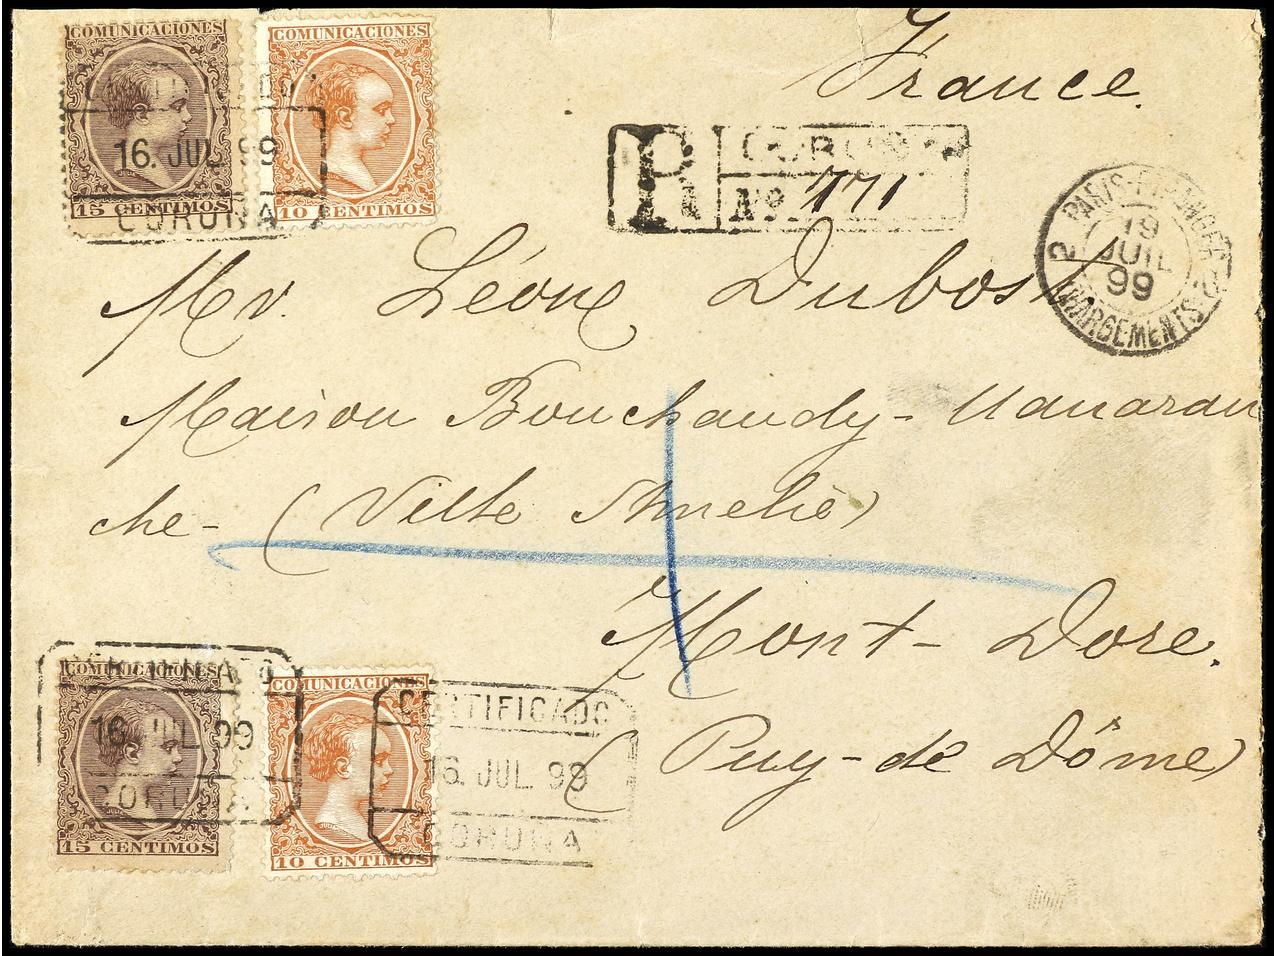 COMUNICACIONES
16. JUL 99
15 CENTIMOS
CORUNA
COMUNICACIONES
10 CENTIMOS
France.
R
Nº 771
PARIS-ETRANGER
19
JUIL
99
2
CHARGEMENTS
Mr. Léon Dubost
Maison Bouchaudy-
che- (Ville Amelie)
Mont-Dore.
(Puy-de Dôme)
CERTIFICADO
COMUNICACIONES
16 JUL 99
CORUNA
15 CENTIMOS
COMUNICACIONES
10 CENTIMOS
CERTIFICADO
16. JUL. 99
CORUNA